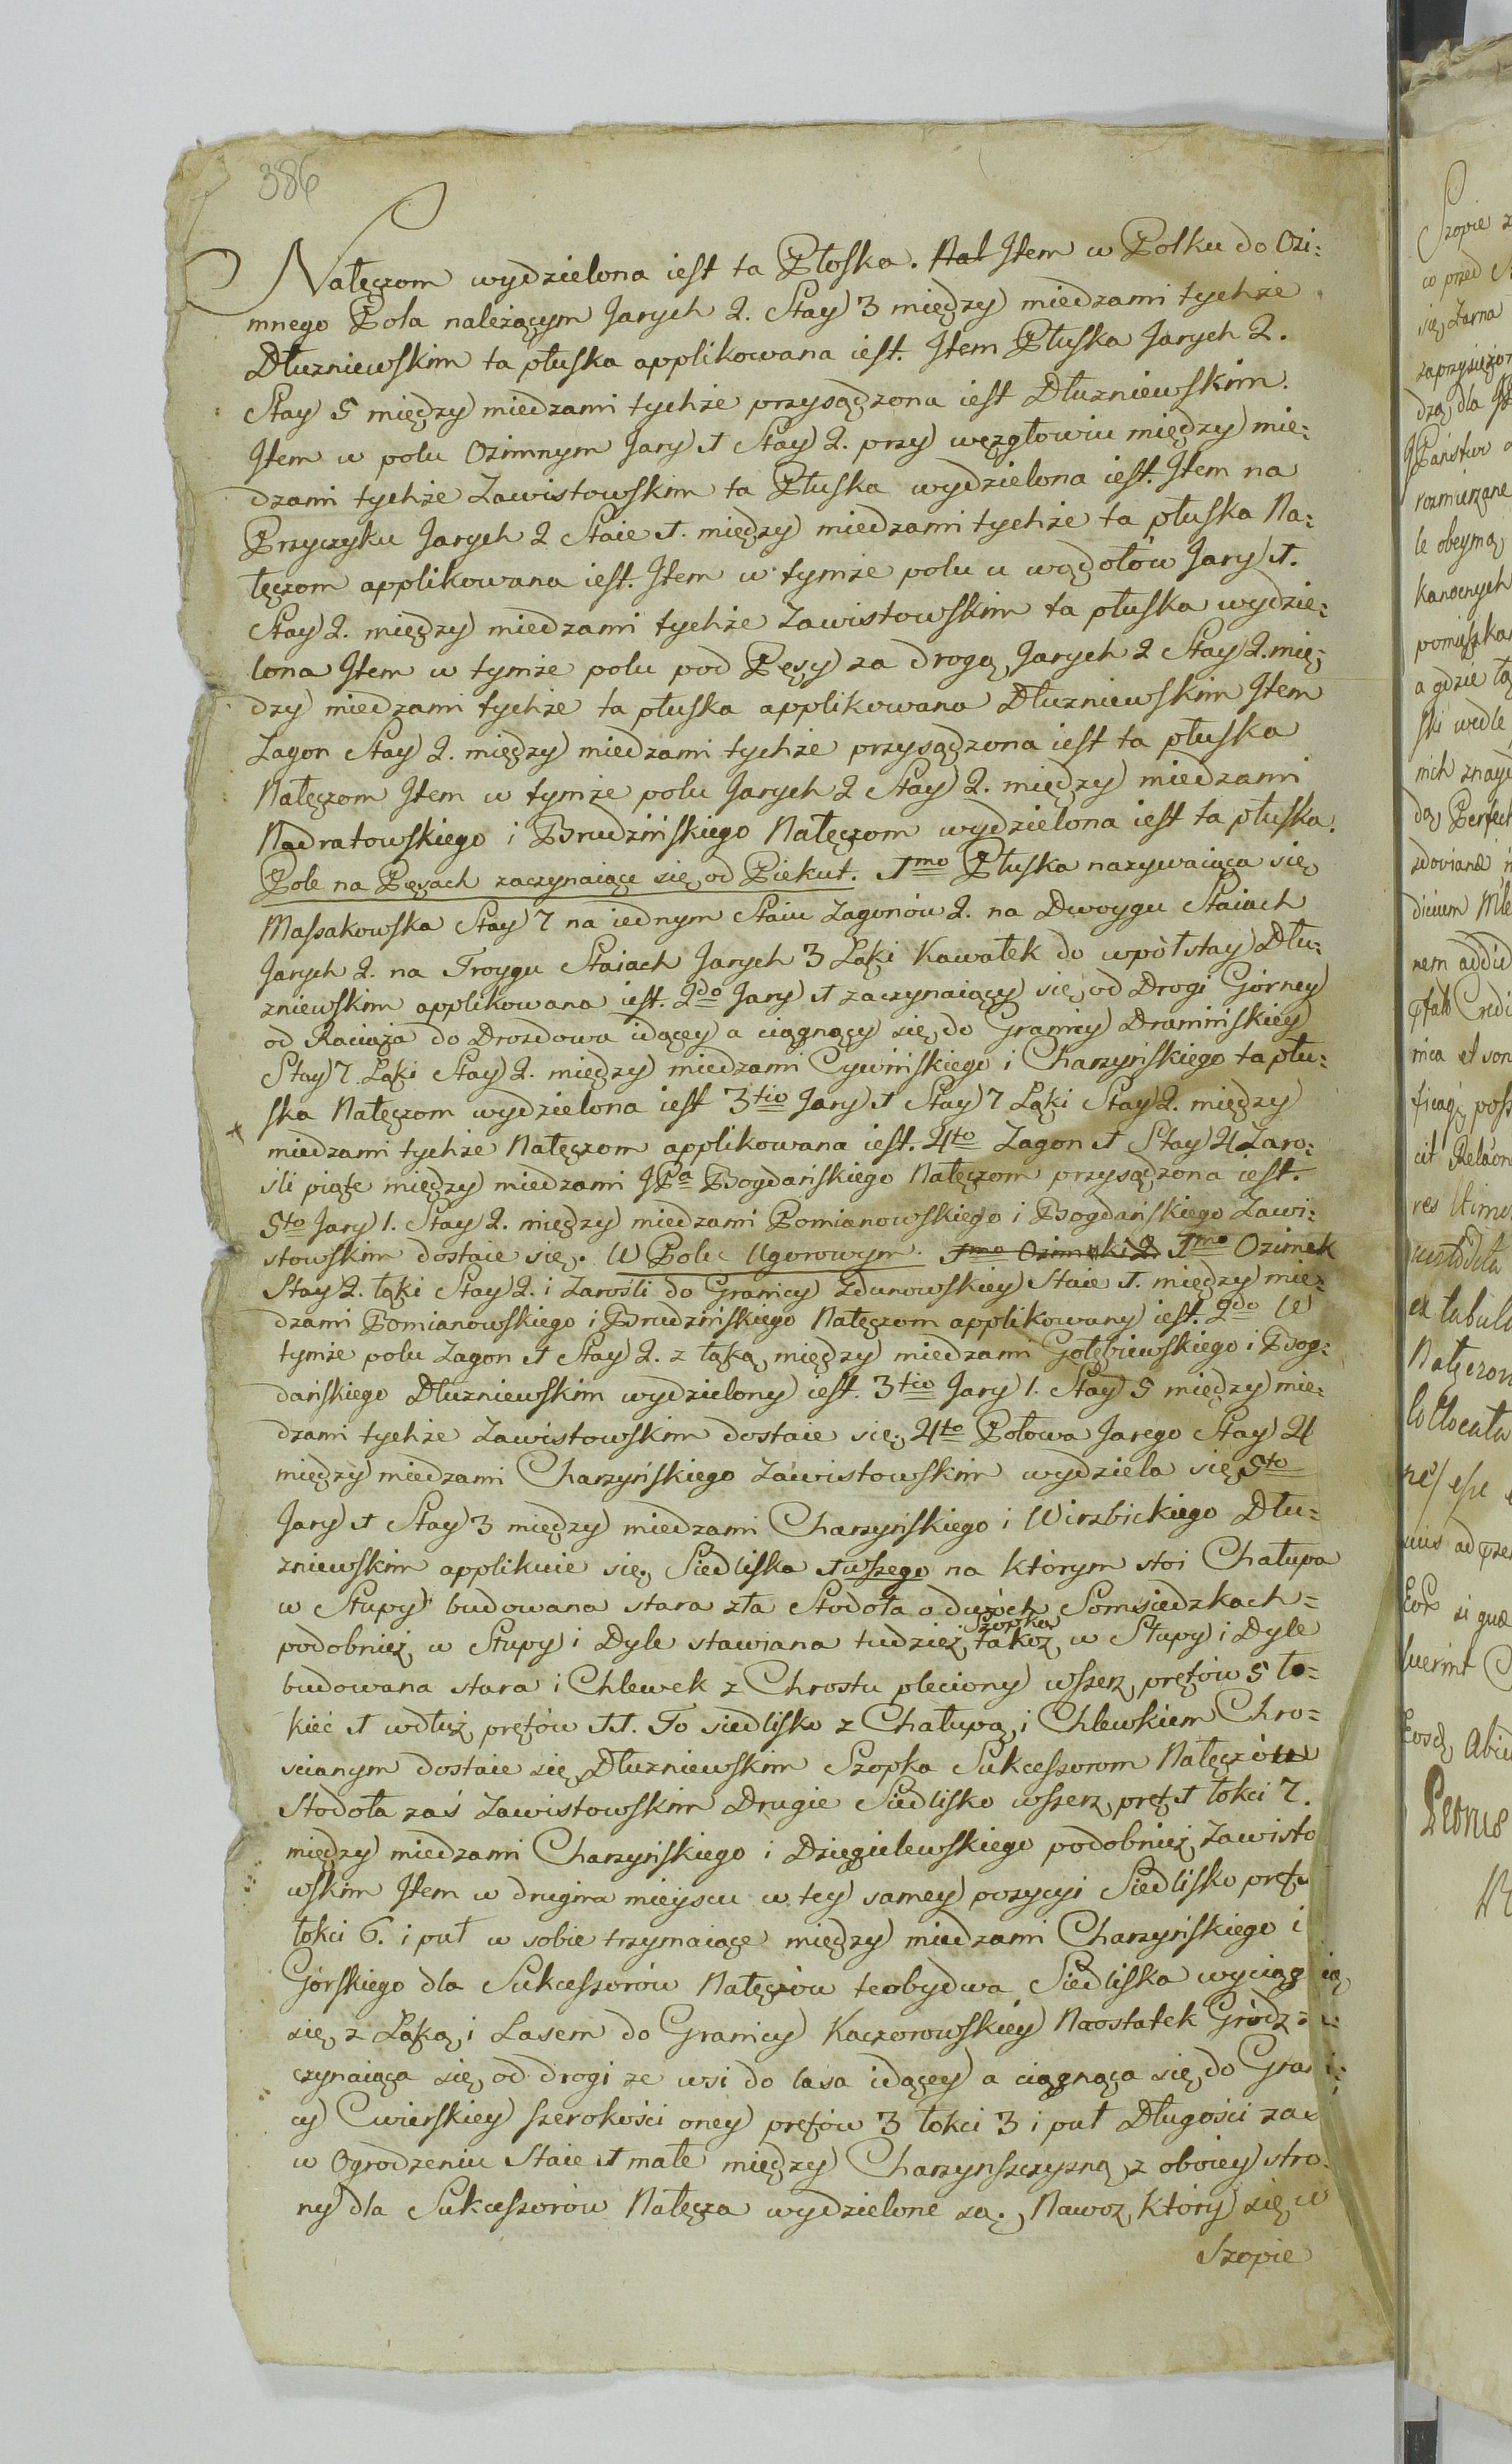 386
Natęczom wydzielona iest ta Płoska. Nal Item w Polku do Ozi:
mnego Pola należącym Jarych 2. Stay 3 między miedzami tychże
Dłuzniewskim ta płuska applikowana iest. Item Płuska Jarych 2.
Stay 5 między miedzami tychże przysądzona iest Dłuzniewskim.
Item w polu Ozimnym Jary 1 Stay 2. przy węzgłowiu między mie:
dzami tychże Zawistowskim ta Płuska wydzielona iest. Item na
Przyczyku Jarych 2 Staie 1. między miedzami tychże ta płuska Na:
tęczom applikowana iest. Item w tymże polu u wądołów Jary 1.
Stay 2. między miedzami tychże Zawistowskim ta płuska wydzie:
lona Item w tymże polu pod Pęsy za drogą Jarych 2 Stay 2. mię:
dzy miedzami tychże ta płuska applikowana Dłuzniewskim Item
Zagon Stay 2. między miedzami tychże przysądzona iest ta płuska
Natęczom Item w tymże polu Jarych 2 Stay 2. między miedzami
Nadratowskiego i Brudzińskiego Natęczom wydzielona iest ta płuska.
Pole na Pęsach zaczynaiące się od Piekut. 1mo Płuska nazywaiąca się
Massakowska Stay 7 na iednym Staiu Zagonów 2. na Dwoygu Staiach
Jarych 2. na Troygu Staiach Jarych 3 Łąki Kawałek do wpółstay Dłu:
zniewskim applikowana iest. 2do Jary 1 zaczynaiący się od Drogi Górney
od Raciąża do Drozdowa idącey a ciągnący się do Granicy Dramińskiey
Stay 7 Łąki Stay 2. między miedzami Cywińskiego i Charzyńskiego ta płu:
ska Natęczom wydzielona iest 3tio Jary 1 Stay 7 Łąki Stay 2. między
miedzami tychże Natęczom applikowana iest. 4to Zagon 1 Stay 4 Zaro:
śli piąte między miedzami JPa Bogdańskiego Natęczom przysądzona iest.
5to Jary 1. Stay 2. między miedzami Pomianowskiego i Bogdańskiego Zawi:
stowskim dostaie się. W Polu Ugorowym. 1mo Ozimki 2 1mo Ozimek
Stay 2. łąki Stay 2. i Zarośli do Granicy Zdunowskiey Staie 1. między mie:
dzami Pomianowskiego i Brudzińskiego Natęczom applikowany iest. 2do W
tymże polu Zagon 1 Stay 2. z łąką między miedzami Gołębiewskiego i Bog:
dańskiego Dłuzniewskim wydzielony iest. 3tio Jary 1. Stay 5 między mie:
dzami tychże Zawistowskim dostaie się. 4to Połowa Jarego Stay 4
między miedzami Charzyńskiego Zawistowskim wydziela się 5to
Jary 1 Stay 3 między miedzami Charzyńskiego i Wirzbickiego Dłu:
zniewskim applikuie się. Siedliska 1wszego na którym stoi Chałupa
w Słupy budowana stara zła Stodoła o dwóch Somsiedzkach=
podobnież w Słupy i Dyle stawiana tudzież Szopka takoż w Słupy i Dyle
budowana stara i Chlewek z Chrostu pleciony wszerz prętów 5 ło=
kieć 1 wdłuż prętów 11. To siedlisko z Chałupą i Chlewkiem Chro=
scianym dostaie się Dłuzniewskim Szopka Sukcessorom Natęczów
Stodoła zaś Zawistowskim Drugie Siedlisko wszerz pręt 1 łokci 7.
między miedzami Charzyńskiego i Dzięgielewskiego podobnież Zawisto
wskim Item w drugim mieyscu w tey samey pozycyi Siedlisko pręt
łokci 6. i puł w sobie trzymaiące między miedzami Charzyńskiego i
Górskiego dla Sukcessorów Natęczów te obydwa Siedliska wyciąg ią
się z Łąką i Lasem do Granicy Kaczorowskiey Naostatek Gródz=
czynaiąca się od drogi ze wsi do lasa idącey a ciągnąca się do Gra i:
cy Cwierskiey szerokości oney prętów 3 łokci 3 i puł Długości zaś
w Ogrodzeniu Staie 1 małe między Charzynszczyzną z oboiey stro:
ny dla Sukcessorów Natęcza wydzielone są. Nawoz który się w
Szopie
Szopie
co przed
się żarna
dzą dla
JPaństw
rozmierzane
le obeymą
pomieszka
a gdzie
ski wedle
nich znayd
dą Perfect
dicium
Credi
rica et
poss
cit
res
ex tabul
esse
ad
si qua
fuerint